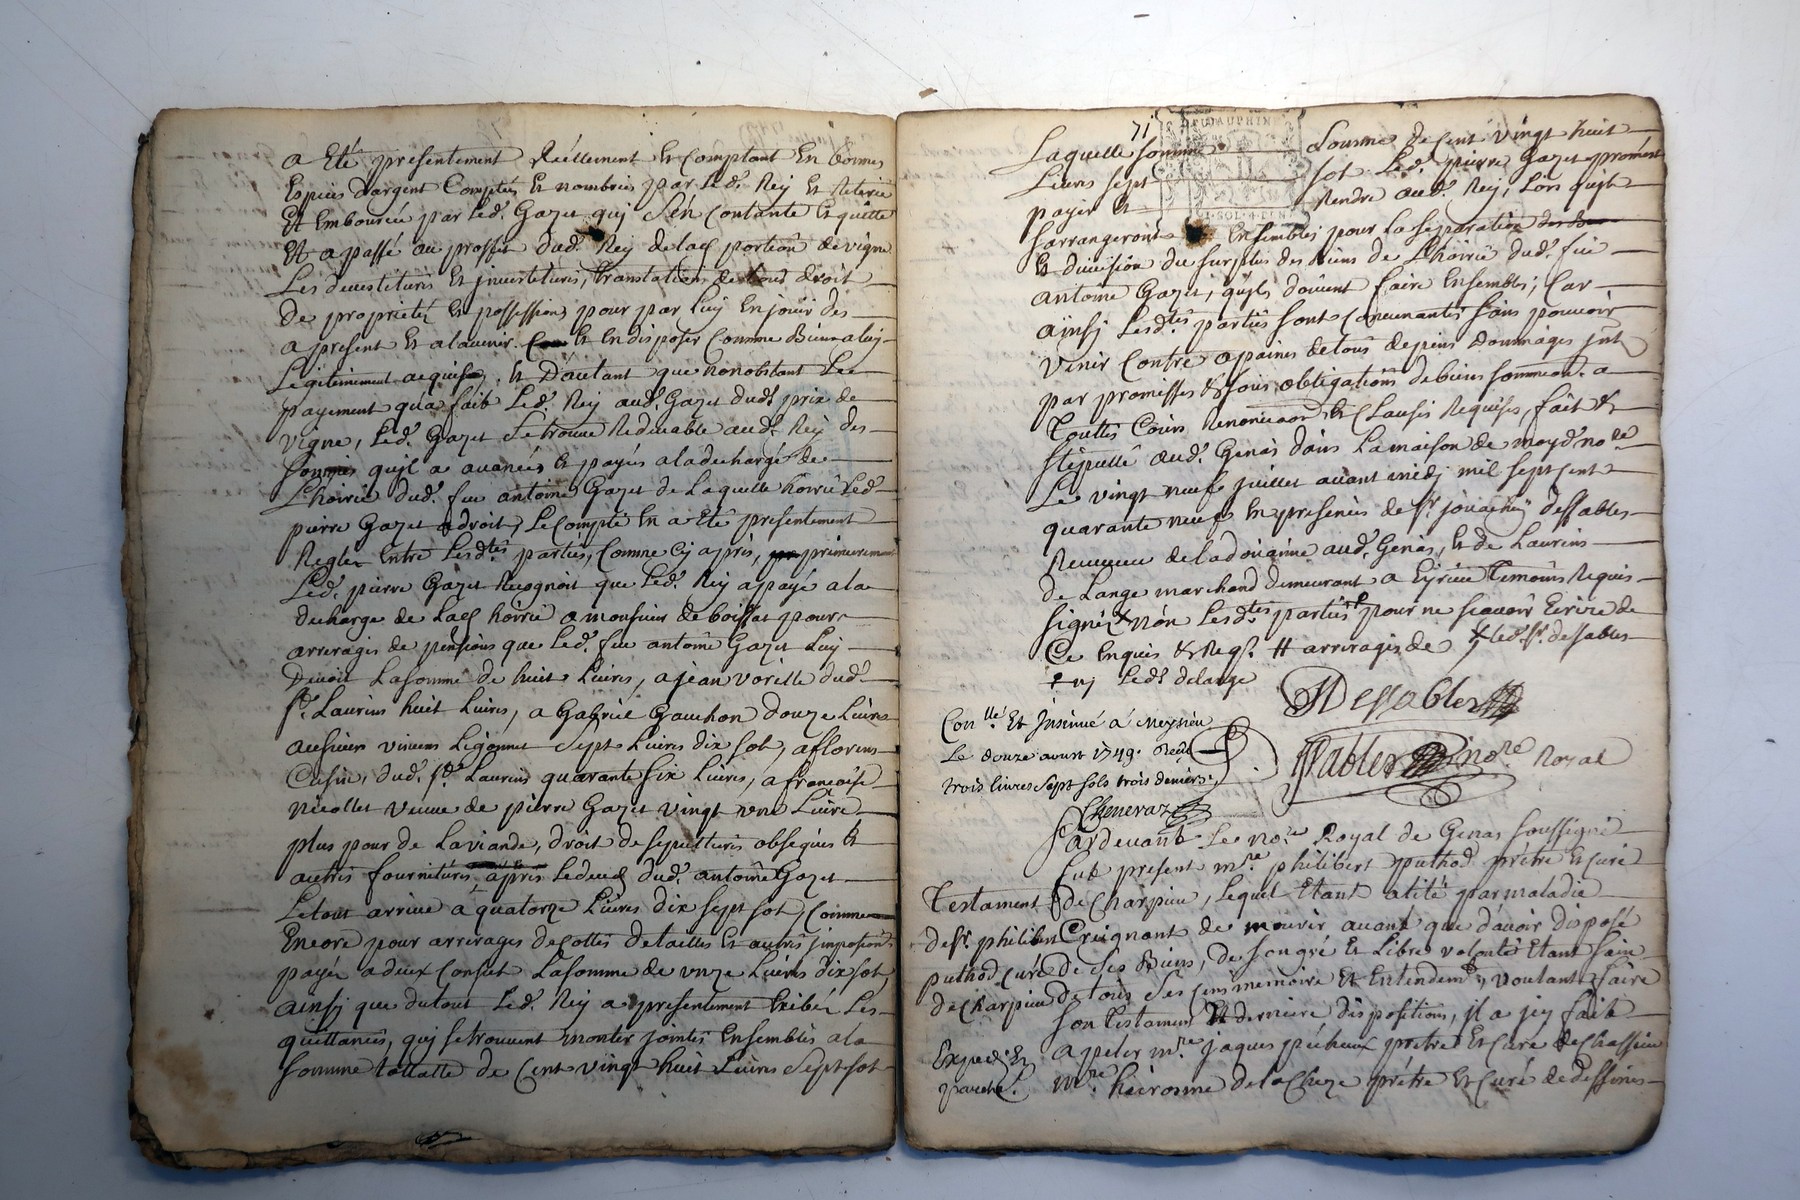 a Eté presentement Réellement Et Comptant En bonnes
Especes d'argent Comptés Et nombrées par Led. Rey Et Retirée
Et Emboursée par Led. Gazet quj S'en Contante Et quitte
Et a passé au proffit dud. Rey de lad portion de vigne
Les devestitures Et jnvestitures, translation de tous droit
de propriétéz Et possessions pour par Luy En jouir dès
a present Et alavenir Et En disposer Comme Biens a luy
Légitimement acquise, Et D'autant que nonobstant Le
payement qu'a fait Led. Rey aud. Gazet dud. prix de
vigne, Led. Gazet Se trouve Redevable aud. Rey des
Sommes qujl a avancées Et payés aladecharge de
L'hoirie dud. feu antoine Gazet de Laquelle hoirie Led.
pierre Gazet a droit, Le Compte En a Eté presentement
Regler Entre Lesdtes parties, Comme Cy après, primierement
Led. pierre Gazet Recognoit que Led. Rey a payé a la
decharge de Lad hoirie a monsieur de boissat pour
arrerages de pensions que Led. feu antoine Gazet Luy
Devoit La somme de huit Livres, a jean vorille dud.
St. Laurins huit Livres, a Gabriel Gauchon douze Livres
au sieur vincens Ligonnet Sept Livres dix sot, a florens
Cusin, dud. St. Laurins quarante Six Livres, a francoise
nicollet veuve de pierre Gazet vingt une Livre
plus pour de La viande, droit de sepultures obseques Et
autres fournitures après Le deces dud. antoine Gazet
Le tout arrive a quatorze Livres dix sept sot, Comme
Encore pour arrerages de Cottes de tailles Et autres jmpositions
payée a deux Consul La somme de unze Livres dix sot,
ainsj que du tout Led. Rey a presentement Exibée Les
quittances, quj se trouvent monter jointes Ensembles a la
somme tottalle de Cent vingt huit Livres Sept sot
71
DAUPHIN
SOL 4 DEN
Laquelle Somme Somme de Cent vingt huit
Livres Sept sot Led. pierre Gazet promèt
payer Et Rendre aud. Rey, Lors qujls
s'arrangeront Ensembles pour La Separation
Et division du surplus des Biens de L'hoirie dud. feu
antoine Gazet, qujls doivent faire Ensembles; Car
ainsj Lesdtes parties sont Convenantes sans pouvoir
venir Contre a paines de tous depens Dommages jnt
par promesses Et sous obligations de biens sommeon. a
Touttes Cours Renonciaon Et Clauses Requises, fait Et
stipullé aud. Genas dans La maison de moyd. nore
Le vingt neuf juillet avant midj mil sept Cent
quarante neuf En presences de Sr. jouachin dessables
Receveur de la doüanne aud. Genas, Et de Laurins
de Lange marchand demeurant a Eyrieu temoins Requis
signéz non Lesdtes parties pour ne scavoir Ecrire de
Ce Enquis Et Reqs. # arrerages de Led. Sr. dessables
nj Led. delange
JDessables
Conllé Et Jnsinué á Meysieu
Le douze aoust 1749. Reçu
trois livres sept sols trois deniers.
Cheneraz
Sables nore Royal
Pardevant Le nore Royal de Genas soussigné
fut present mre philibert puthod prêtre Et Curé
Testament
de Sr. philibert
puthod Curé
de Charpieu
de Charpieu, Lequel Etant alité par maladie
Creignant de mourir avant que d'avoir disposé
de Ses Biens, de Son gré Et Libre volonté Etant Sain
de tous Ses Cens memoire Et Entendemt, voulant faire
Son Testament Et derniere dispositions, jl a jcy fait
Expedié En
apeler mre jaques prêtre Et Curé de Chassieu
mre hierosme de la Cheze prêtre Et Curé de dessines